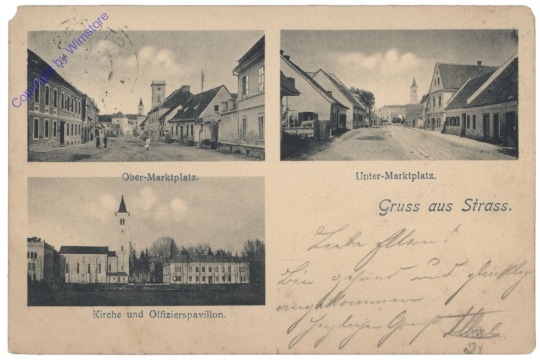 Copyright by Wimstore
Ober-Marktplatz.
Unter-Marktplatz.
Gruss aus Strass.
Kirche und Offizierspavillon.
Liebe Eltern!
Bin gesund und glücklich
angekommen
Herzlichen Gruß